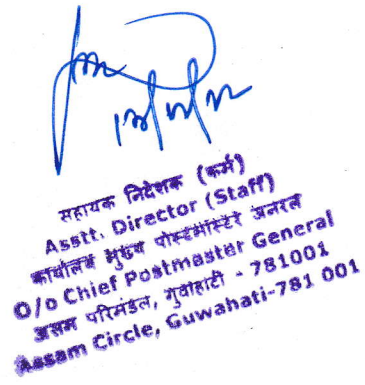 सहायक निदेशक (कर्म)
Asstt. Director (Staff)
कार्यालय मुख्य पोस्टमास्टर जनरल
O/o Chief Postmaster General
असम परिमंडल, गुवाहाटी - 781001
Assam Circle, Guwahati-781 001